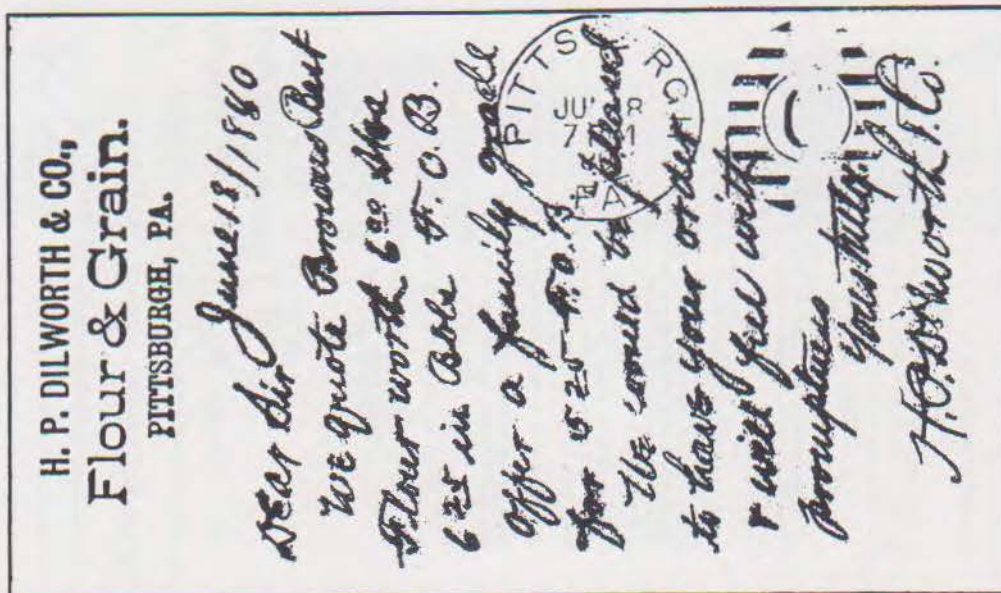 H. P. DILWORTH & CO.,
Flour & Grain.
PITTSBURGH, PA.
June 18/1880
Dear Sir
We quote Best
Flour worth 6 00
6 25 in Bbls F. O. B.
offer a family grade
for 5 25 F. O. B.
We would be pleased
to have your order
& will with
promptness
Yours truly
H. P. Dilworth & Co.
PITTS RGH
7
PA